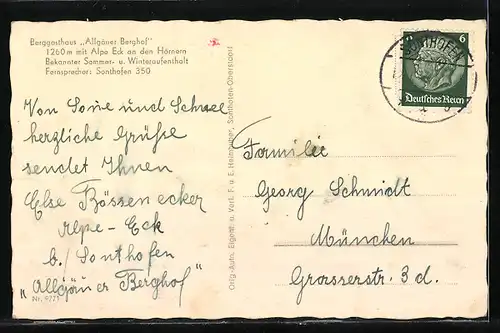 Berggasthaus „Allgäuer Berghof"
1260 m mit Alpe Eck an den Hörnern
Bekannter Sommer- u. Winteraufenthalt
Fernsprecher: Sonthofen 350
Von Sonne und Schnee
herzliche Grüße
sendet Ihnen
Else Bössenecker
Alpe-Eck
b./ Sonthofen
„Allgäuer Berghof"
Nr. 9771
Orig.-Aufn. Eigent. u. Verl. F. u. E. Heimhuber, Sonthofen-Oberstdorf
SONTHOFEN
6
Deutsches Reich
Familie
Georg Schmidt
München
Grasserstr. 3 d.